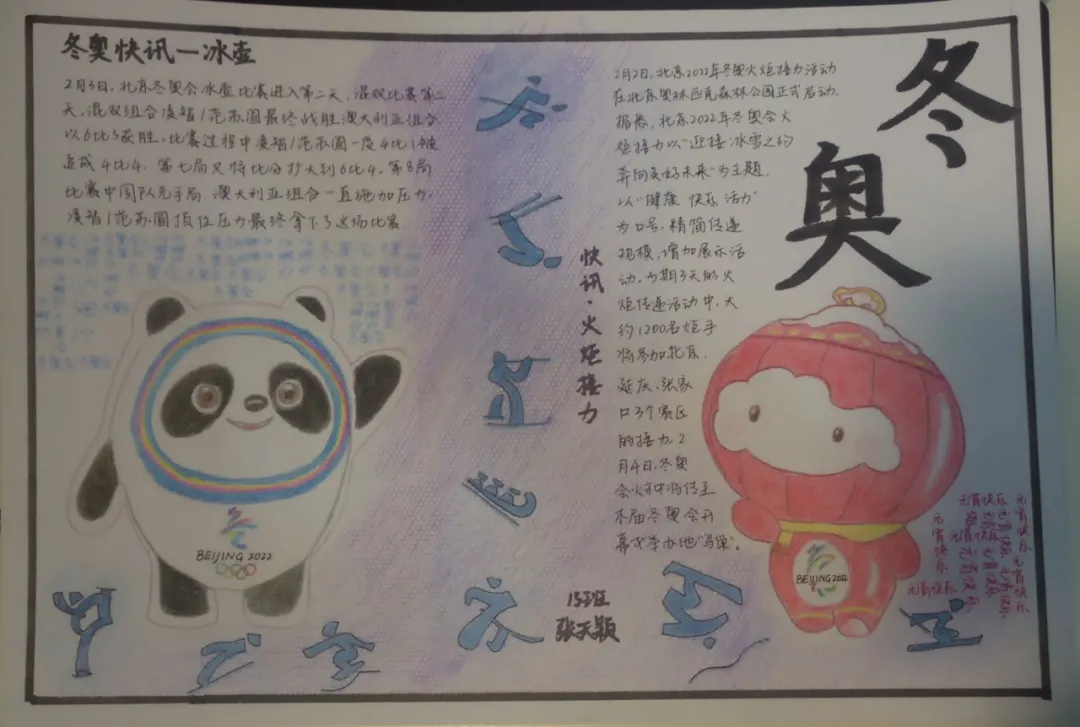 冬奥快讯—冰壶
2月3日,北京冬奥会冰壶比赛进入第二天,混双比赛第二
天,混双组合凌智/范苏圆最终战胜澳大利亚组合
以6比5获胜。比赛过程中凌智/范苏圆一度4比1被
追成4比4。第七局又将比分扩大到6比4。第8局
比赛中国队先手局 澳大利亚组合一直施加压力。
凌智/范苏圆顶住压力最终拿下了这场比赛
BEIJING 2022
快讯·火炬接力
2月2日,北京2022年冬奥火炬接力活动
在北京奥林匹克森林公园正式启动。
据悉,北京2022年冬奥会火
炬接力以"迎接冰雪之约
奔向美好未来"为主题.
以"健康 快乐 活力"
为口号,精简传递
规模,增加展示活
动。为期3天的火
炬传递活动中,大
约1200名炬手
将参加北京.
延庆、张家
口3个赛区
的接力.2
月4日,冬奥
会火种将传至
本届冬奥会开
幕式举办地"鸟巢"。
冬
奥
BEIJING 2022
元宵快乐
元宵快乐
元宵快乐
元宵快乐
元宵快乐
元宵快乐
15班
张天颖